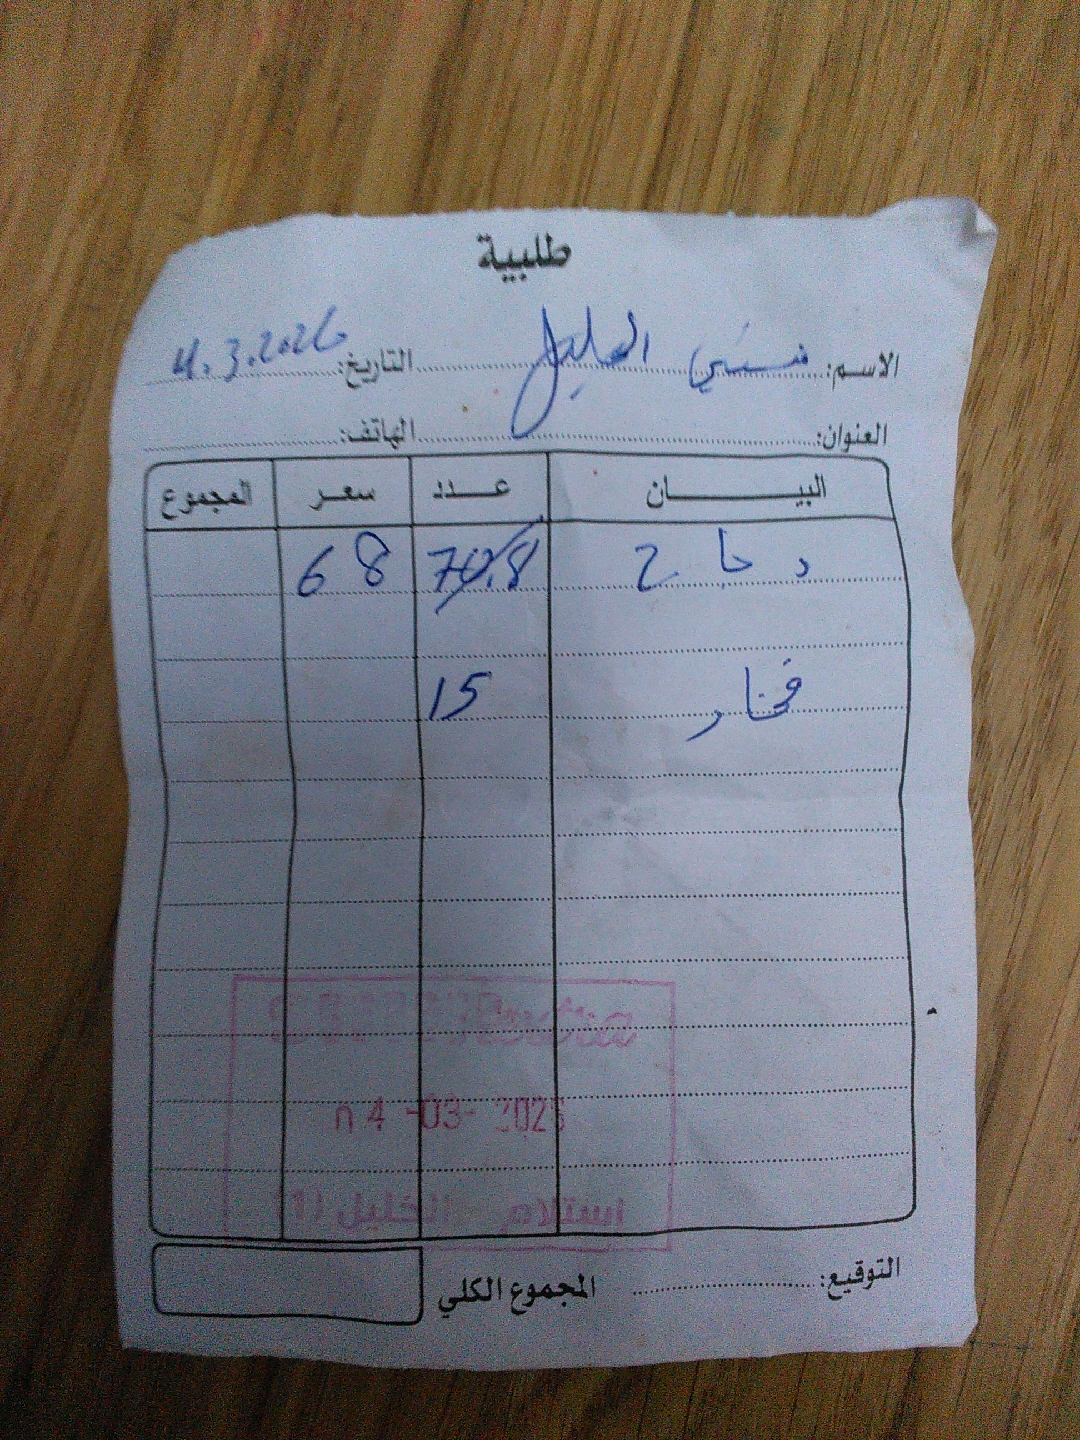 طلبية
الاسم: التاريخ: 4.3.2026
العنوان: الهاتف:
البيـــــان عـــدد سعـر المجموع
دجاج 70.8 68
فخار 15
04-03-2026
استلام الخليل (1)
التوقيع: المجموع الكلي